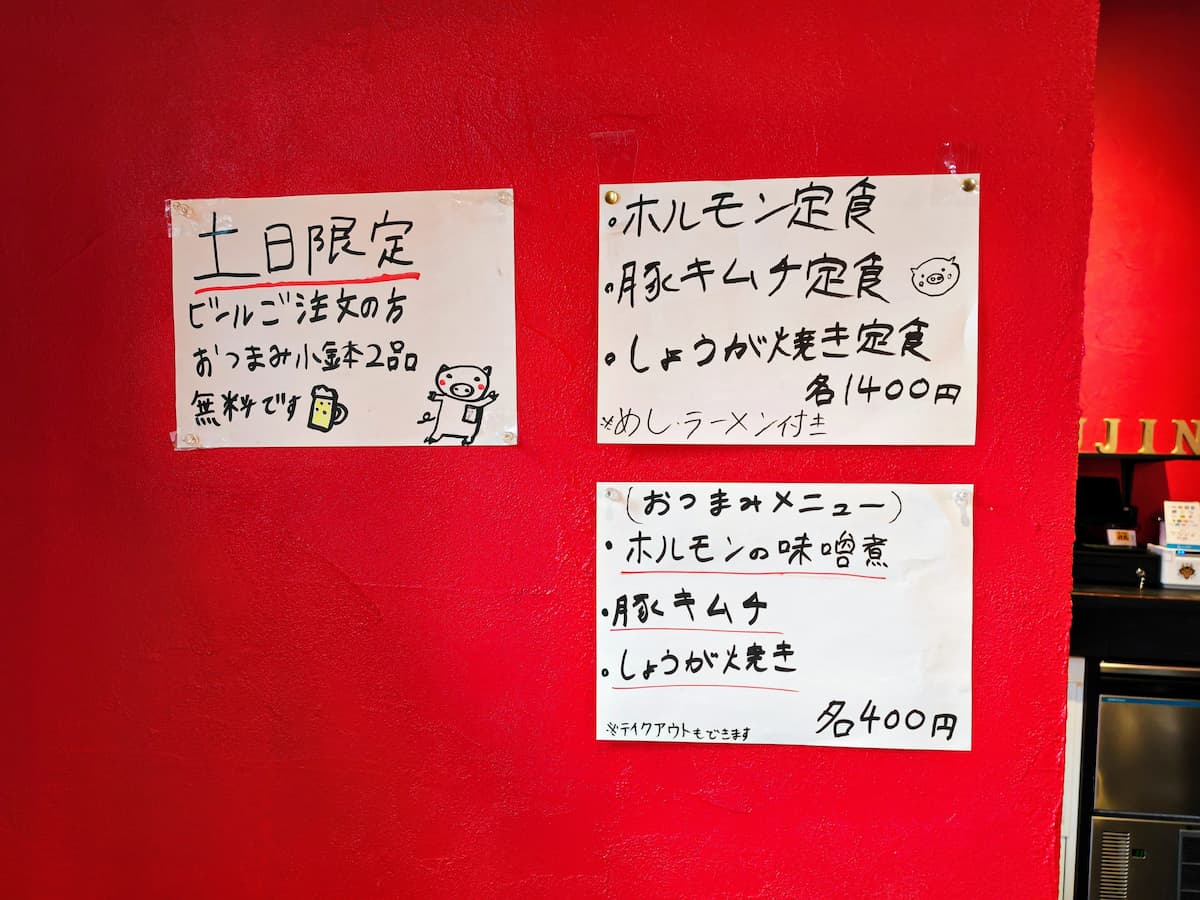 土日限定
ビールご注文の方
おつまみ小鉢2品
無料です
・ホルモン定食
・豚キムチ定食
・しょうが焼き定食
各1400円
※めし・ラーメン付き
(おつまみメニュー)
・ホルモンの味噌煮
・豚キムチ
・しょうが焼き
各400円
※テイクアウトもできます
JIN